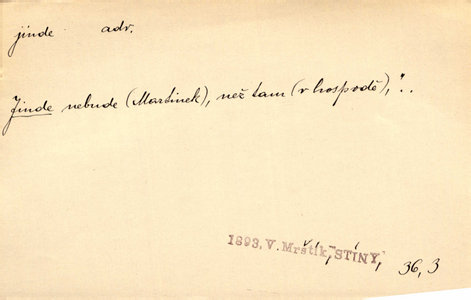 jinde adv.
Jinde nebude (Martinek), než tam (v hospodě), "..
1893, V. Mrštík, STÍNY, 36,3